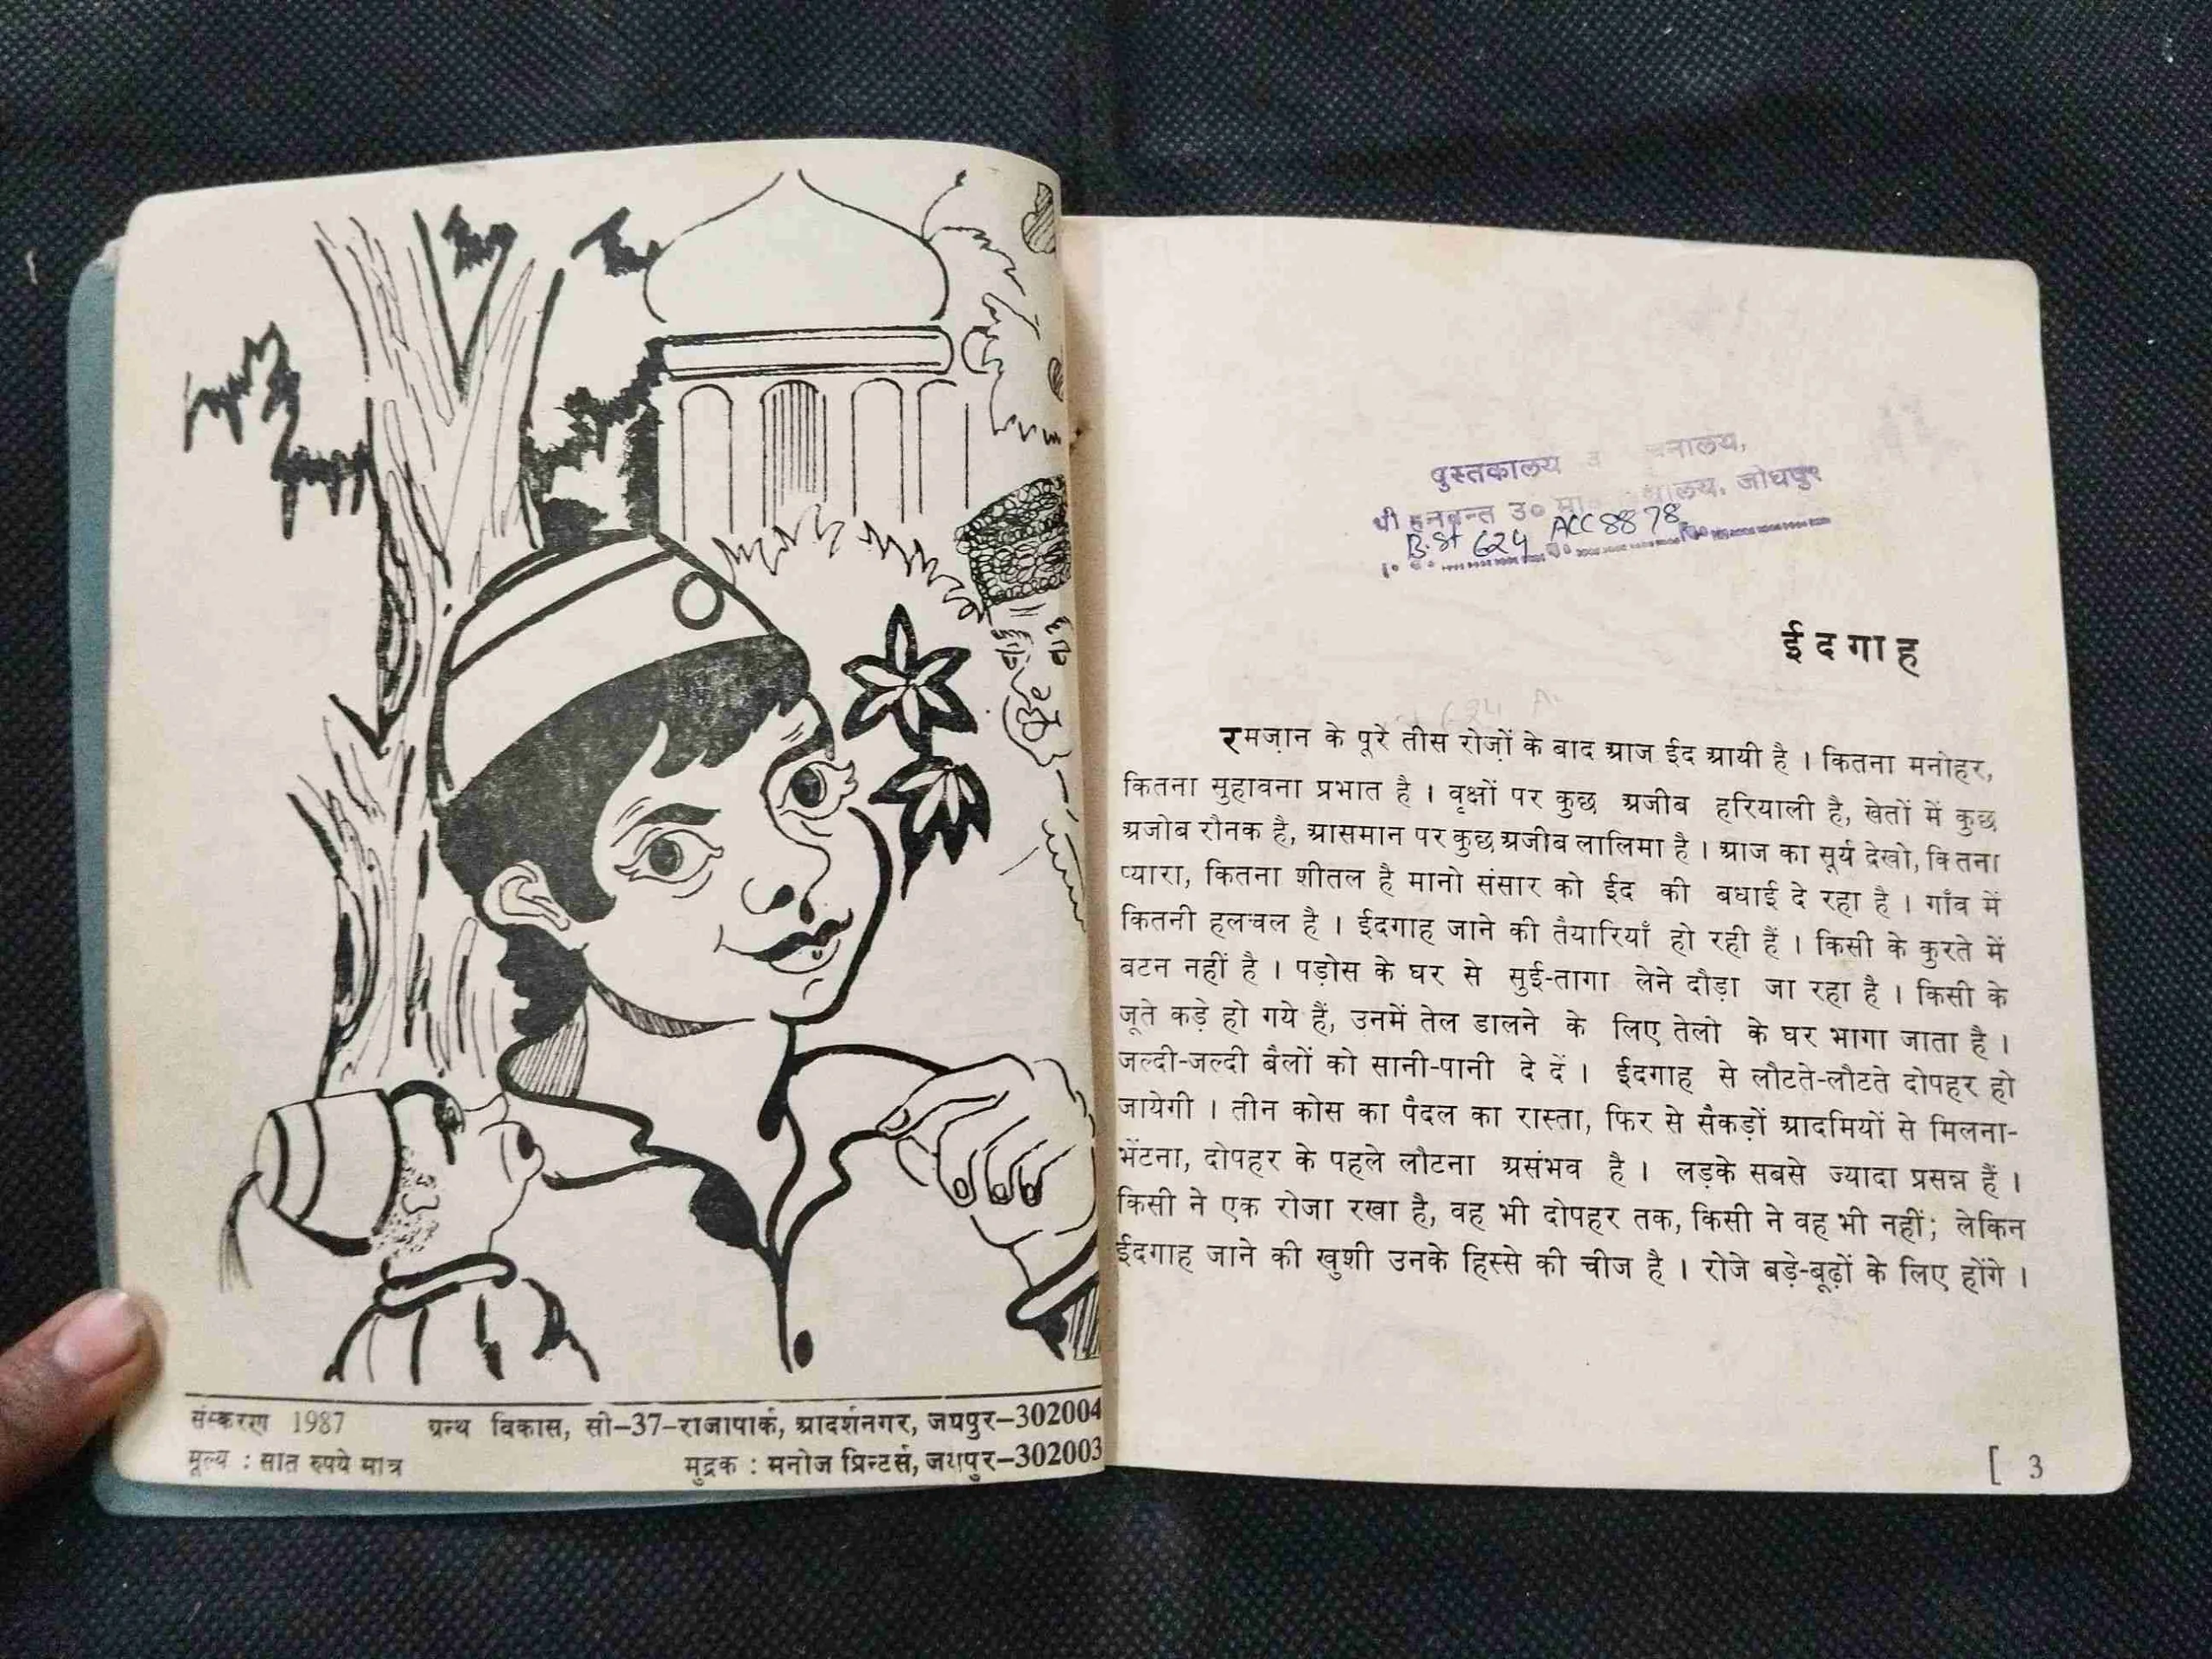 संस्करण 1987 ग्रन्थ विकास, सी-37-राजापार्क, आदर्शनगर, जयपुर-302004
मूल्य : सात रुपये मात्र मुद्रक : मनोज प्रिन्टर्स, जयपुर-302003
पुस्तकालय
उ० मा० जोधपुर
B.St 624 ACC 8878
ईदगाह
रमज़ान के पूरे तीस रोज़ों के बाद आज ईद आयी है । कितना मनोहर,
कितना सुहावना प्रभात है । वृक्षों पर कुछ अजीब हरियाली है, खेतों में कुछ
अजोब रौनक है, आसमान पर कुछ अजीब लालिमा है । आज का सूर्य देखो, कितना
प्यारा, कितना शीतल है मानो संसार को ईद की बधाई दे रहा है । गाँव में
कितनी हलचल है । ईदगाह जाने की तैयारियाँ हो रही हैं । किसी के कुरते में
बटन नहीं है । पड़ोस के घर से सुई-तागा लेने दौड़ा जा रहा है । किसी के
जूते कड़े हो गये हैं, उनमें तेल डालने के लिए तेलो के घर भागा जाता है ।
जल्दी-जल्दी बैलों को सानी-पानी दे दें । ईदगाह से लौटते-लौटते दोपहर हो
जायेगी । तीन कोस का पैदल का रास्ता, फिर से सैकड़ों आदमियों से मिलना-
भेंटना, दोपहर के पहले लौटना असंभव है । लड़के सबसे ज्यादा प्रसन्न हैं ।
किसी ने एक रोजा रखा है, वह भी दोपहर तक, किसी ने वह भी नहीं; लेकिन
ईदगाह जाने की खुशी उनके हिस्से की चीज है । रोजे बड़े-बूढ़ों के लिए होंगे ।
[ 3